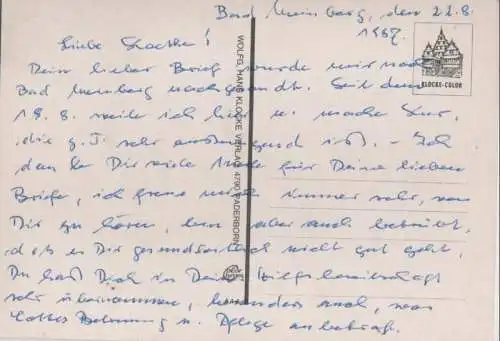 Bad Meinberg, den 22.8.
1987.
Liebe !
Dein lieber Brief wurde mir nach
Bad Meinberg nachgesandt. Seit dem
18.8. weile ich hier u. mache Kur,
die z.T. sehr anstrengend ist. – Ich
danke Dir viele Male für Deine lieben
Briefe, ich freue mich immer sehr, von
Dir zu hören, bin aber auch betrübt,
daß es Dir gesundheitlich nicht gut geht.
Du hast Dich in Deine Hilfsbereitschaft
sehr übernommen, besonders auch, was
Betreuung u. Pflege anbetraf.
WOLFG. HANS KLOCKE VERLAG, 4790 PADERBORN
KLOCKE-COLOR